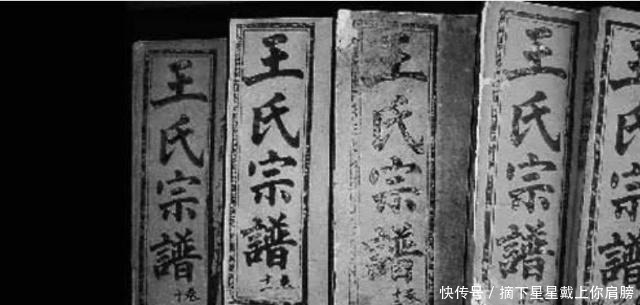 王氏宗譜
十卷
王氏宗譜
十一卷
王氏宗譜
王氏宗譜
王氏宗譜
快传号 / 摘下星星戴上你肩膀